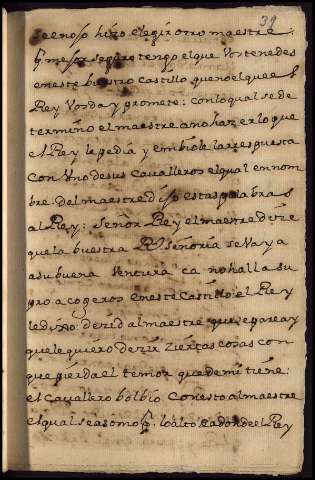 39
se enojo hizo elegir otro maestre:
q̃ mejor seguro tengo el que vos tenedes
en este buestro Castillo que no el que el
Rey vos da y promete: con lo qual se de
termino el maestre a no hazer lo que
el Rey le pedia y embiole la respuesta
con Uno de sus cavalleros el qual en nom
bre del maestre dijo estas palabras
al Rey: Señor Rey el maestre dize
que la buestra Rl Señoria se Vaya
a su buena Ventura ca no halla su
pro acogeros en este Castillo: el Rey
le dixo: dezid al maestre que se parea y
que le quiero dezir ziertas cosas con
que pierda el temor que de mi tiene:
el Cavallero bolbio con esto al maestre
el qual se asomo p. lo alto a donde el Rey